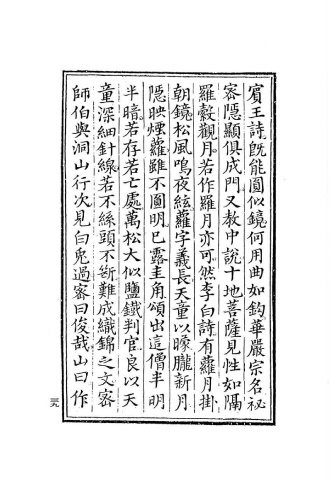 賓王詩旣能圓似鏡何用曲如鈎華嚴宗名祕
密隱顯俱成門又敎中說十地菩薩見性如隔
羅縠觀月若作羅月亦可然李白詩有蘿月掛
朝鏡松風鳴夜絃蘿字義長天童以曚朧新月
隱映煙蘿雖不圓明已露圭角頌出這僧半明
半暗若存若亡處萬松大似鹽鐵判官良以天
童深細針線若不絲頭不㫁難成織錦之文密
師伯與洞山行次見白兔過密曰俊哉山曰作
三九